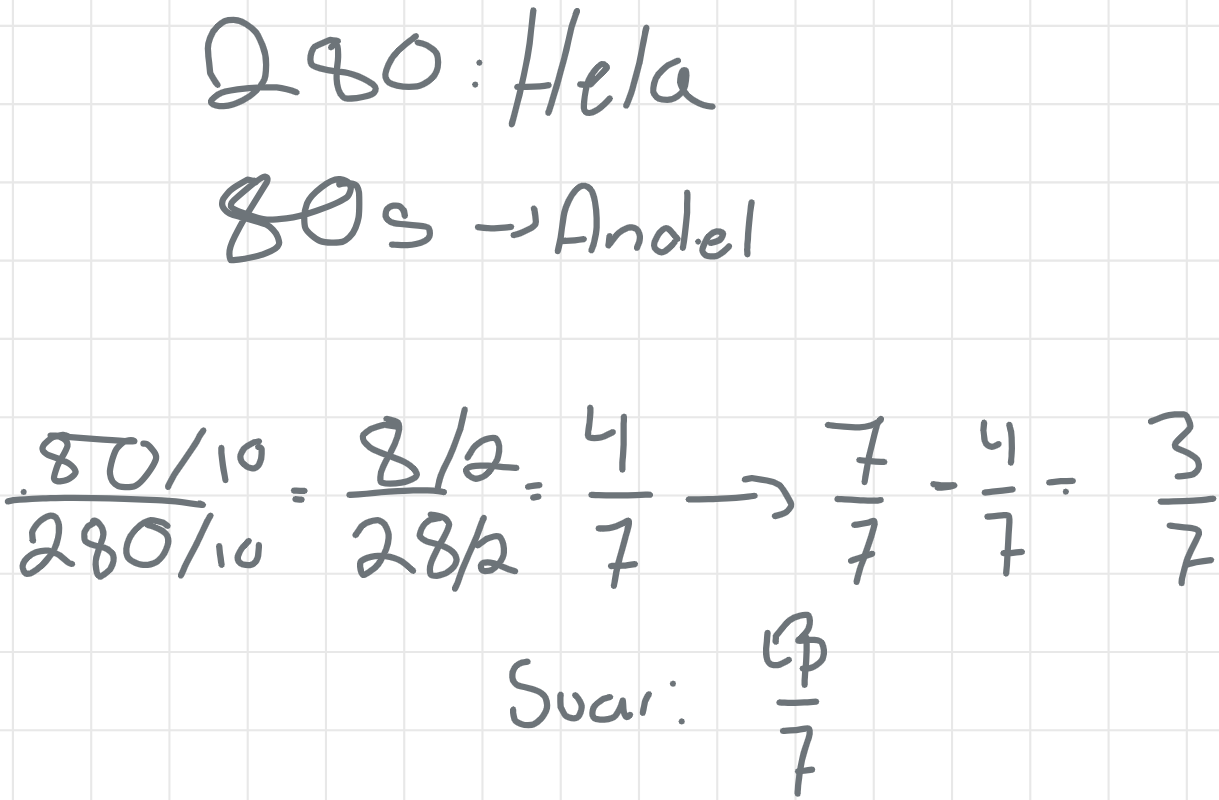 280: Hela
80s → Andel
80/10 / 280/10 = 8/2 / 28/2 = 4/7 → 7/7 - 4/7 = 3/7
Svar: /7